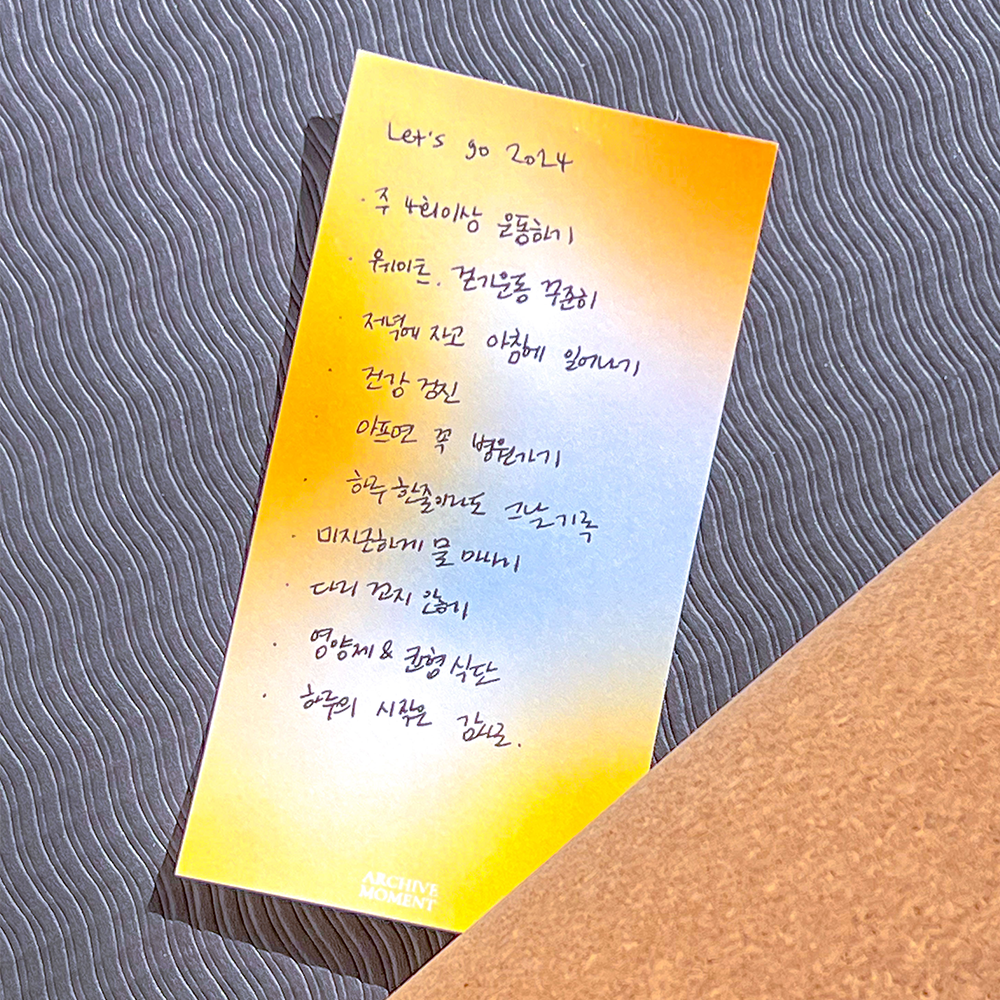 Let's go 2024
· 주 4회이상 운동하기
· 웨이트. 걷기운동 꾸준히
· 저녁에 자고 아침에 일어나기
· 건강 검진
· 아프면 꼭 병원가기
· 하루 한줄이라도 그날 기록
· 미지근하게 물 마시기
· 다리 꼬지 않기
· 영양제 & 균형 식단
· 하루의 시작은 감사로.
ARCHIVE
MOMENT